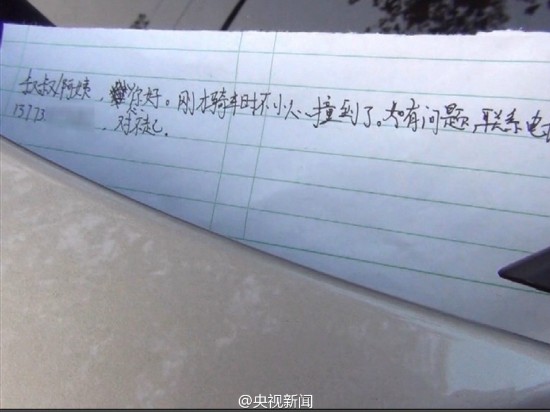 叔叔/阿姨,您好。刚才骑车时不小心撞到了。如有问题,联系电
13173 ,对不起。
@央视新闻